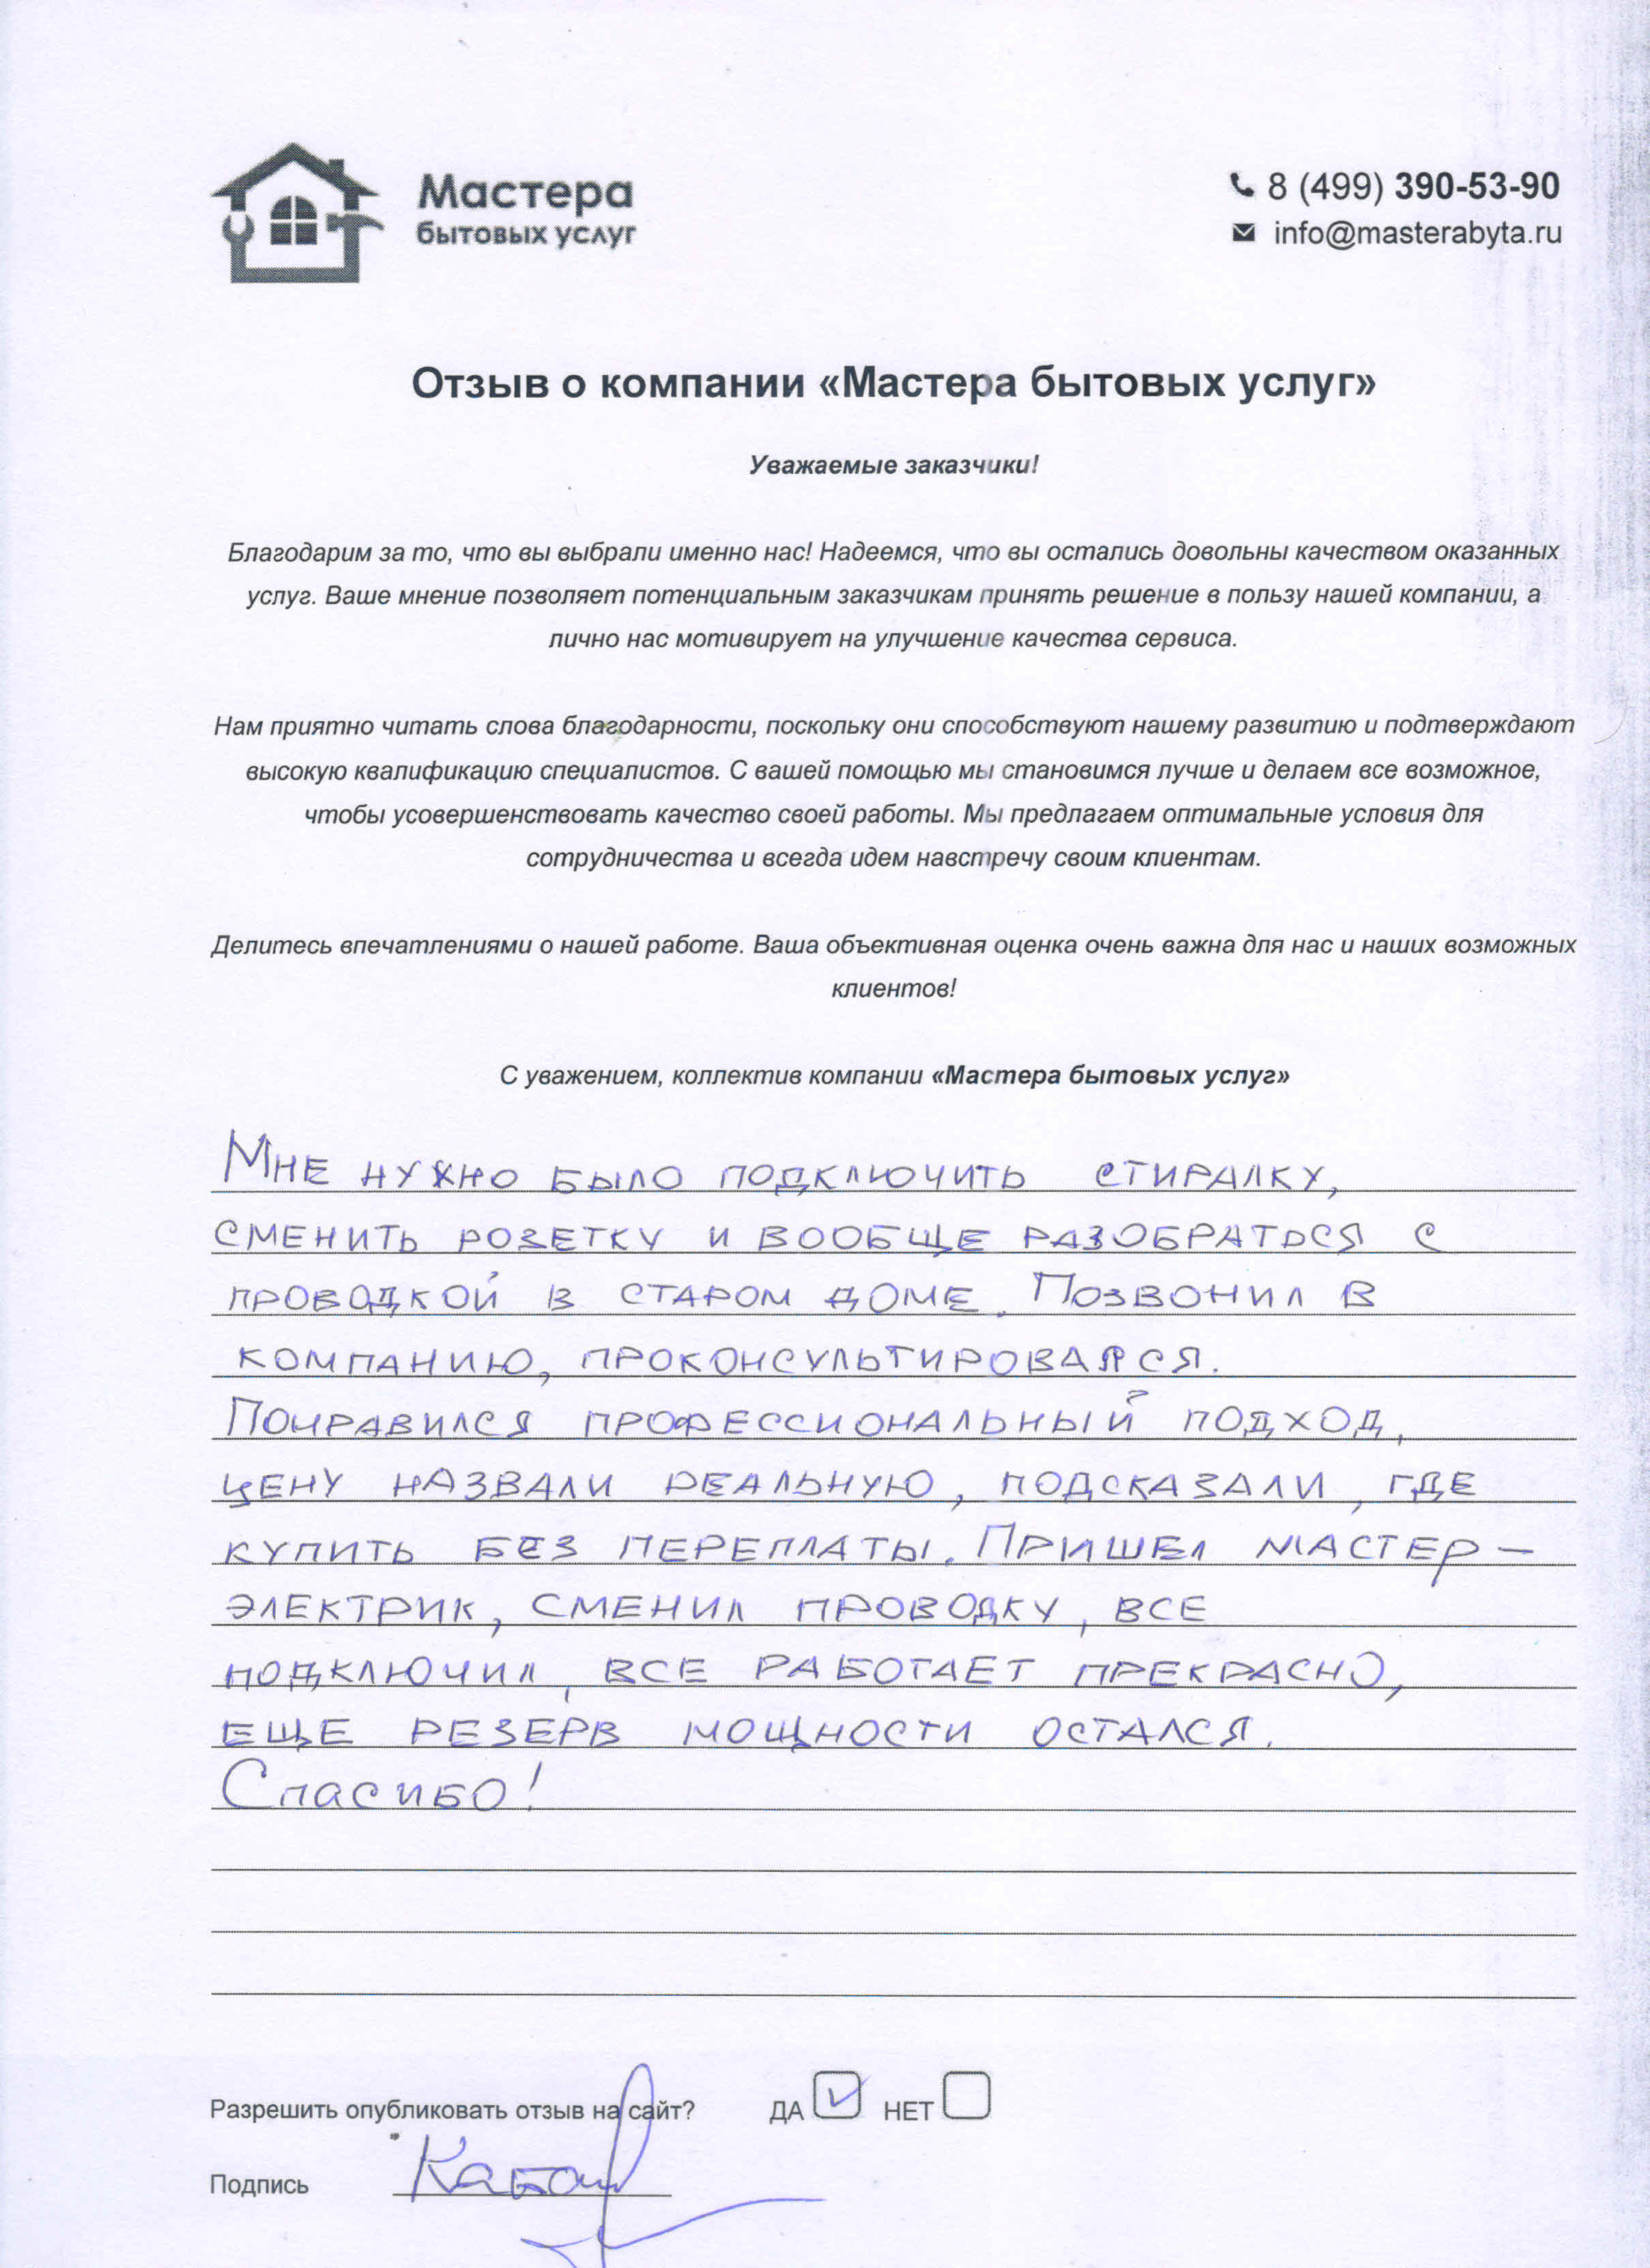 Мастера
бытовых услуг
8 (499) 390-53-90
info@masterabyta.ru
Отзыв о компании «Мастера бытовых услуг»
Уважаемые заказчики!
Благодарим за то, что вы выбрали именно нас! Надеемся, что вы остались довольны качеством оказанных
услуг. Ваше мнение позволяет потенциальным заказчикам принять решение в пользу нашей компании, а
лично нас мотивирует на улучшение качества сервиса.
Нам приятно читать слова благодарности, поскольку они способствуют нашему развитию и подтверждают
высокую квалификацию специалистов. С вашей помощью мы становимся лучше и делаем все возможное,
чтобы усовершенствовать качество своей работы. Мы предлагаем оптимальные условия для
сотрудничества и всегда идем навстречу своим клиентам.
Делитесь впечатлениями о нашей работе. Ваша объективная оценка очень важна для нас и наших возможных
клиентов!
С уважением, коллектив компании «Мастера бытовых услуг»
Мне нужно было подключить стиралку,
сменить розетку и вообще разобраться с
проводкой в старом доме. Позвонил в
компанию, проконсультировался.
Понравился профессиональный подход,
цену назвали реальную, подсказали, где
купить без переплаты. Пришел мастер-
электрик, сменил проводку, все
подключил, все работает прекрасно,
еще резерв мощности остался.
Спасибо!
Разрешить опубликовать отзыв на сайт? ДА НЕТ
Подпись